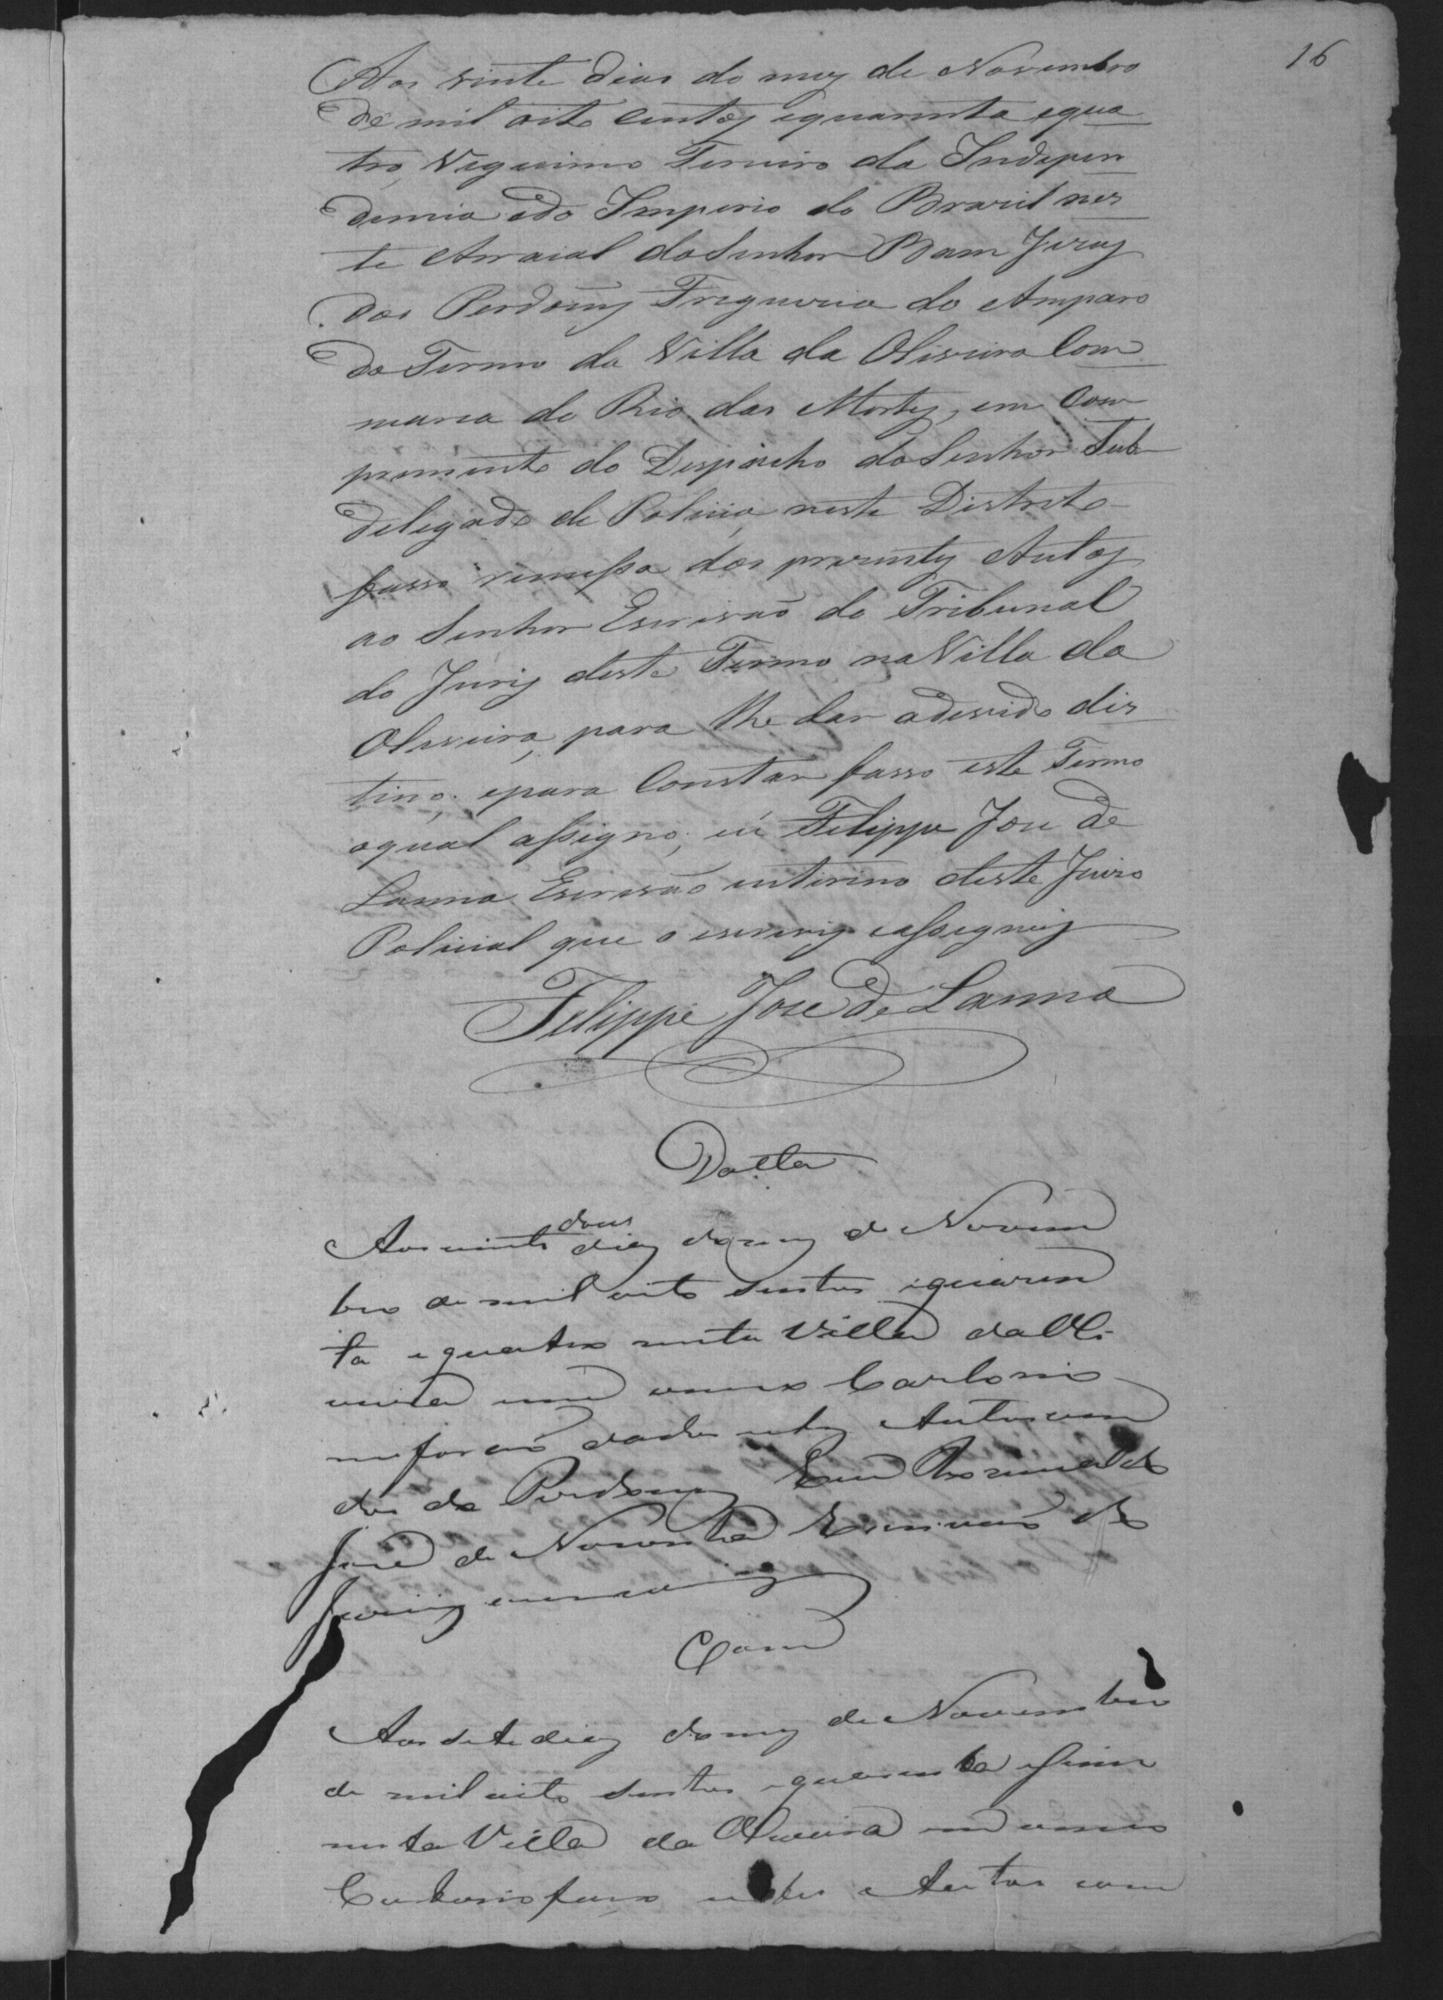 16
Aos vinte dias do mez de Novembro
de mil oito centos equarenta equa
tro, Vigesimo Terceiro da Indepen
dencia edo Imperio do Brazil nes
te Arraial do Senhor Bam Jezus
dos Perdoens Freguezia do Amparo
do Termo da Villa da Oliveira Com
marca do Rio das Mortes, em Com
primento do Despacho do Senhor Sub
delegado de Policia neste Distrito
fasso remessa dos prezentes Autos
ao Senhor Escrivão do Tribunal
do Jury deste Termo na Villa da
Oliveira, para lhe dar adevido dis
tino, epara Constar fasso este Termo
oqual assigno, eu Filippe Jose de
Lanna Escrivão interino deste Juizo
Policial que o escrevy eassigney
Filippe Jose de Lanna
Datta
Aos vinte dous dias do mez de Novem
bro de mil oito sentos equaren
ta equatro nesta Villa da Oli
veira em meu Cartorio
me forão dados estes Autos vin
dos de Perdoens Eu
José de Noronha Escrivão do
Jury que escrevy
Aos sete dias do mez de Novembro
de mil oito sentos equarenta esinco
nesta Villa da Oliveira em meu
Cartorio faço estes Autos com